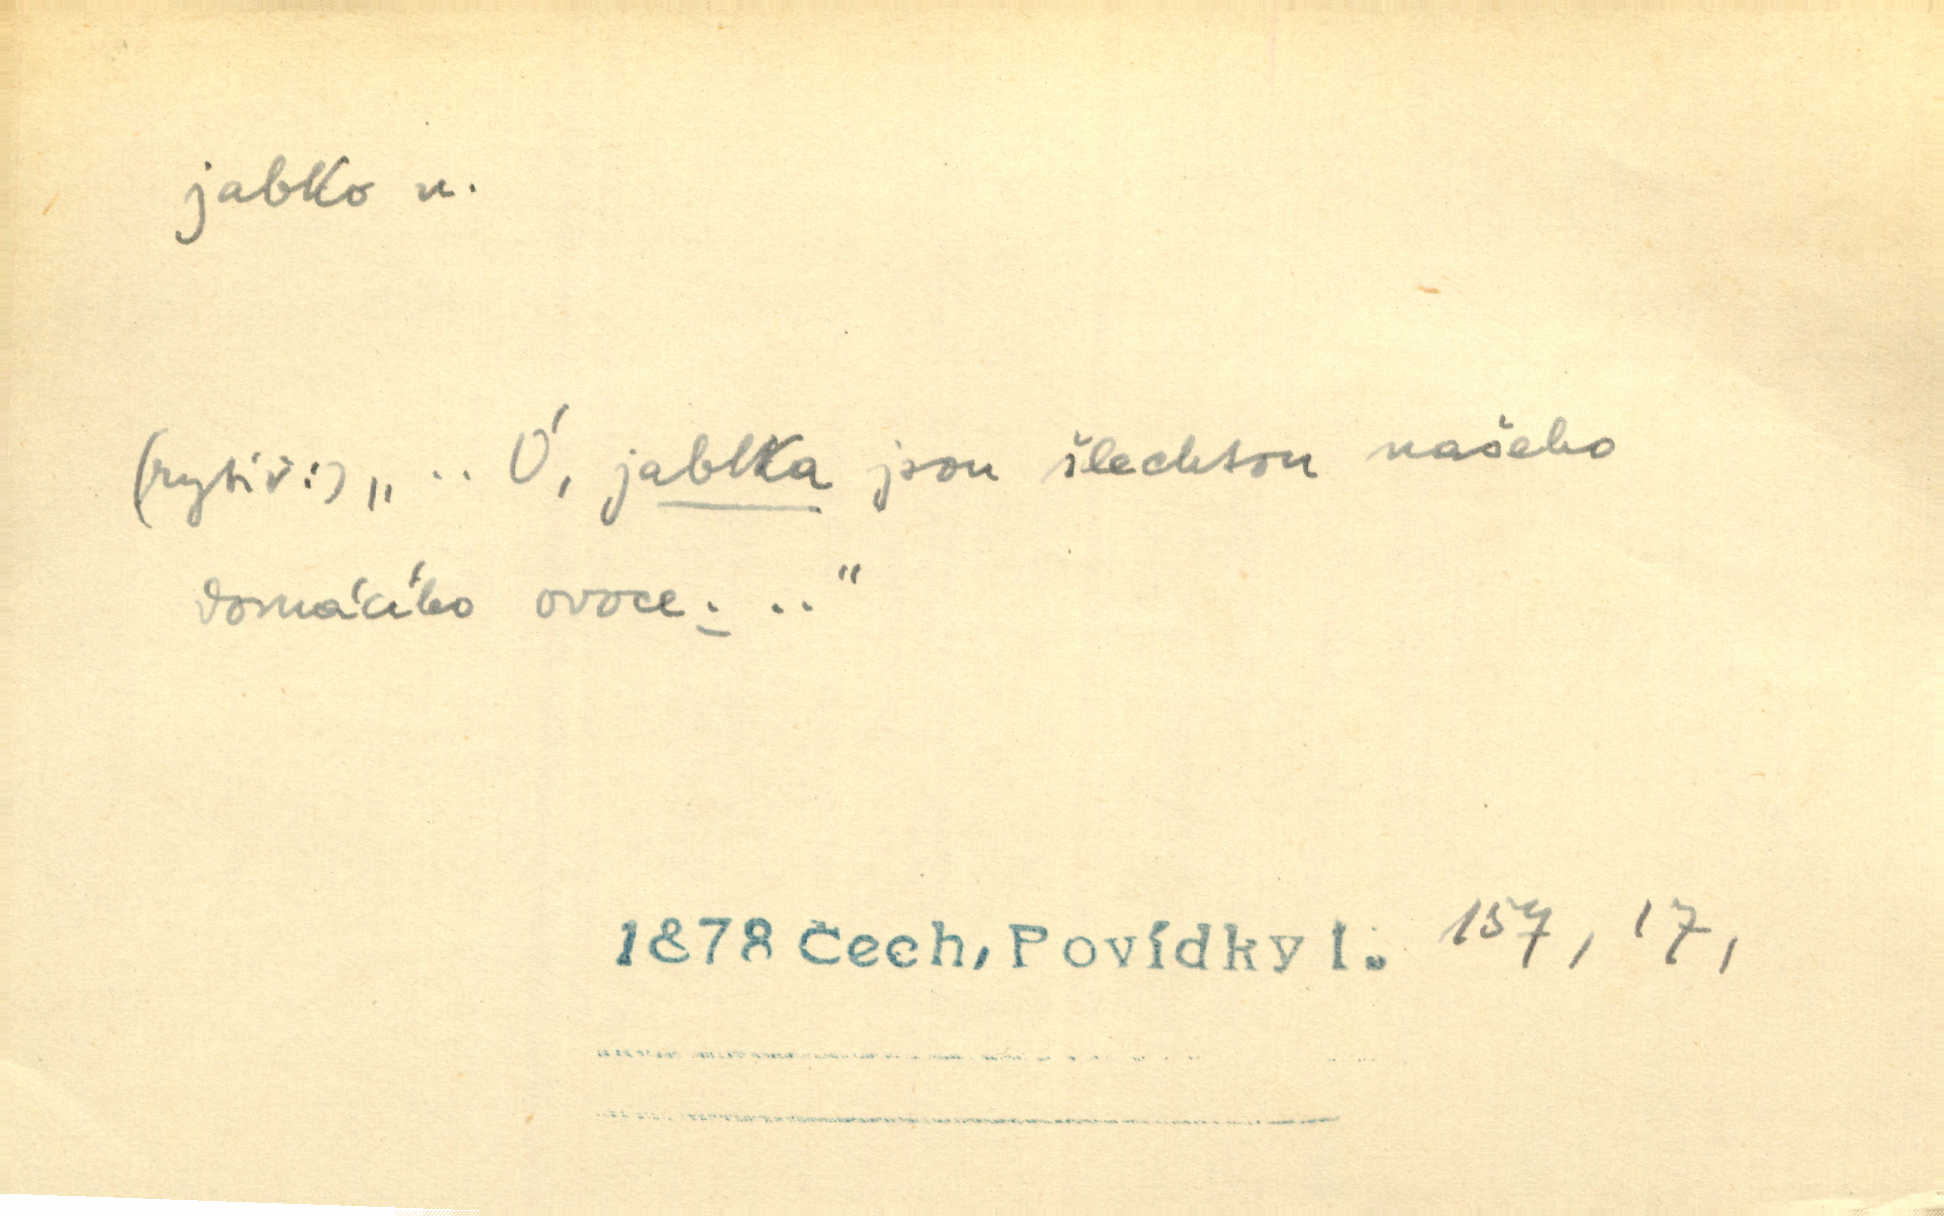 jabko n.
(rytíř:) „ .. Ó, jablka jsou šlechtou našeho
domácího ovoce. .."
1878 Čech, Povídky I. 157, 17,